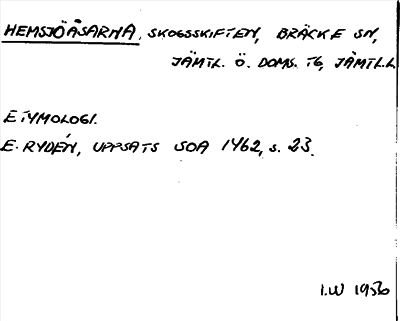 HEMSJÖÅSARNA, SKOGSSKIFTEN, BRÄCKE SN,
JÄMTL. Ö. DOMS. TG, JÄMTL.L
ETYMOLOGI.
E. RYDÉN, UPPSATS SOA 1462, S. 23.
I.W 1956